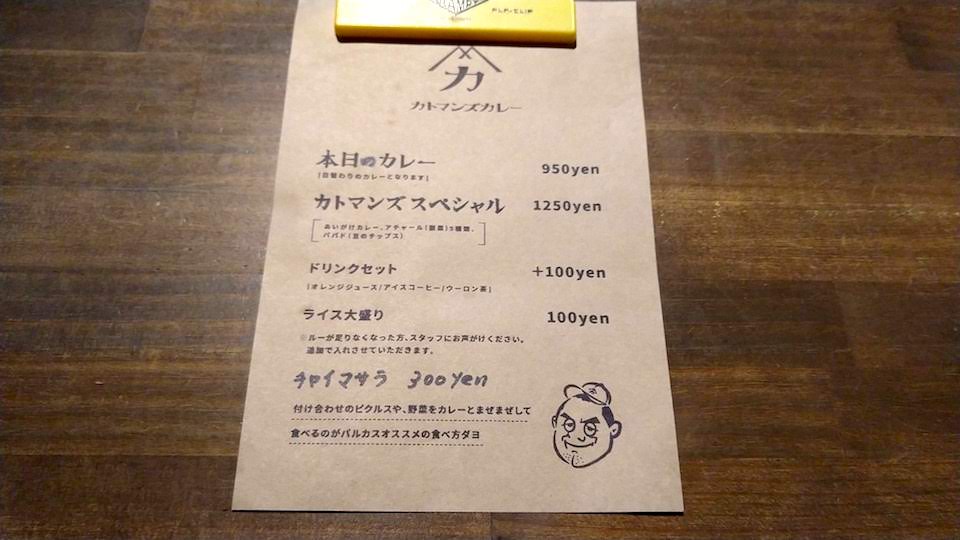 PLP-CLIP
カ
カトマンズカレー
本日のカレー 950yen
[日替わりのカレーとなります]
カトマンズ スペシャル 1250yen
あいがけカレー、アチャール(副菜)5種類、
パパド(豆のチップス)
ドリンクセット +100yen
[オレンジジュース/アイスコーヒー/ウーロン茶]
ライス大盛り 100yen
※ルーが足りなくなった方、スタッフにお声がけください。
追加で入れさせていただきます。
チャイマサラ 300yen
付け合わせのピクルスや、野菜をカレーとまぜまぜして
食べるのがパルカスオススメの食べ方ダヨ